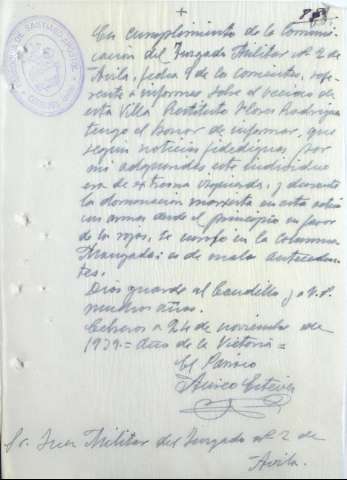 +
En cumplimiento de la Comuni-
cación del Juzgado Militar nº 2 de
Avila, fecha 9 de la corriente, refe-
rente a informes sobre el vecino de
esta Villa Restituto Flores Rodriguez
tengo el honor de informar, que
según noticias fidedignas, por
mi adquiridas este individuo
era de extrema izquierda, y durante
la dominación marxista en esta
con armas desde el principio en favor
de los rojos, se enroló en la columna
Mangada: es de malos anteceden-
tes.
Dios guarde al Caudillo y a V.S.
muchos años.
Cebreros a 24 de noviembre de
1939 = Año de la Victoria =
El Párroco
Esteves
Sr. Juez Militar del Juzgado nº 2 de
Avila.